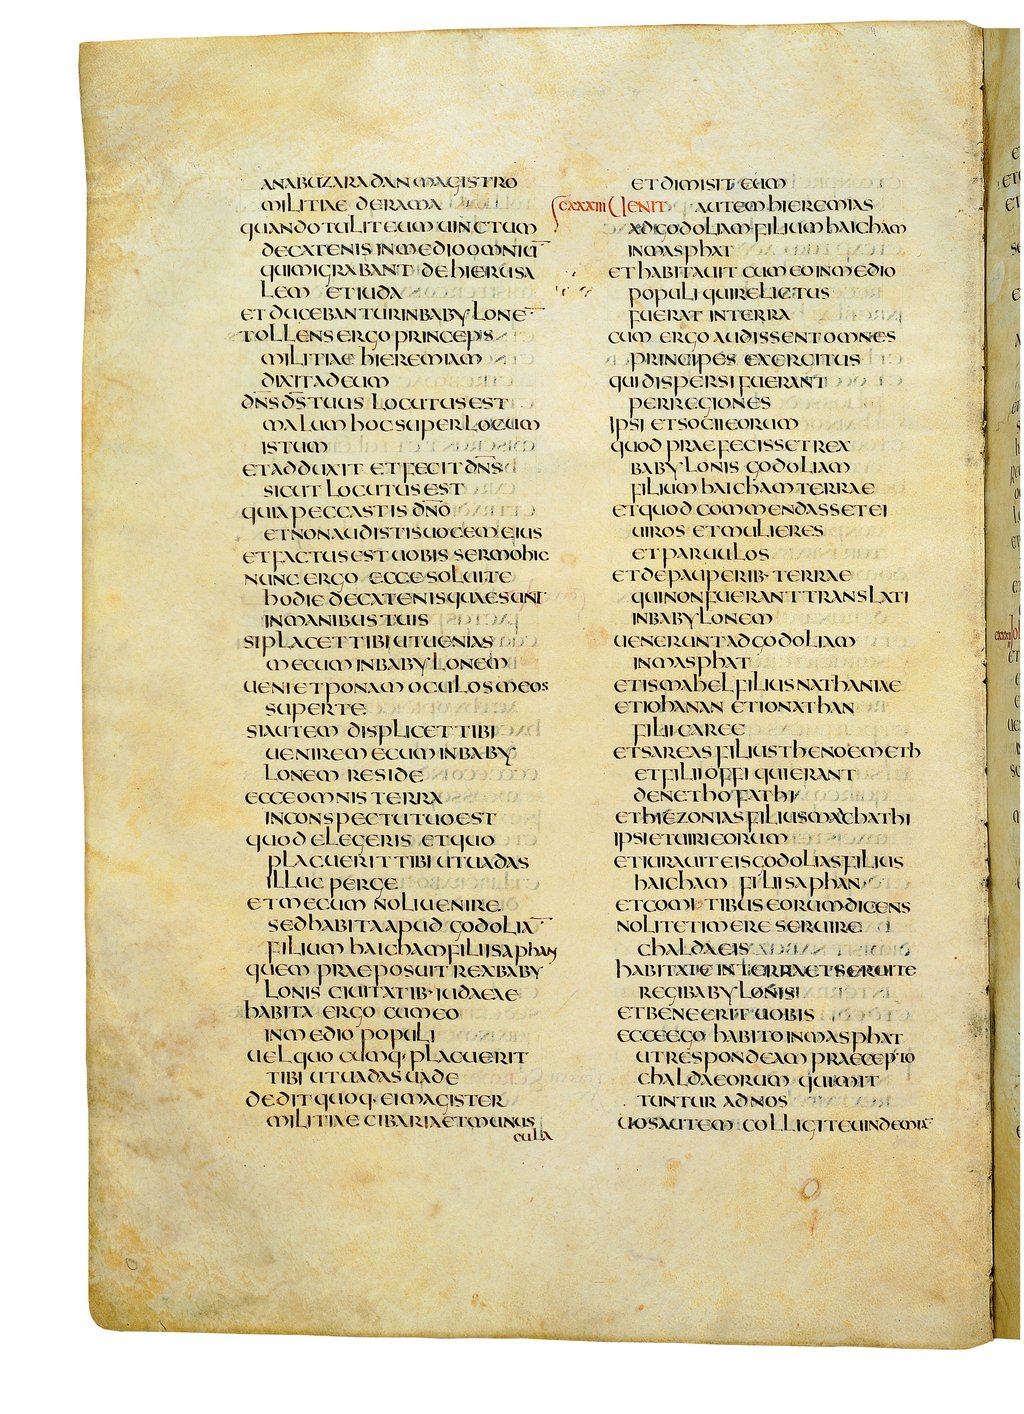 ANABUZARADAN MAGISTRO
MILITIAE DE RAMA
QUANDO TULIT EUM UINCTUM
DE CATENIS IN MEDIO OMNIŪ
QUI MIGRABANT DE HIERUSA
LEM ET IUDA
ET DUCEBANTUR IN BABYLONE¯
TOLLENS ERGO PRINCEPS
MILITIAE HIEREMIAM
DIXIT AD EUM
DN̄S D̄S TUUS LOCUTUS EST
MALUM HOC SUPER LOCUM
ISTUM
ET ADDUXIT ET FECIT DN̄S
SICUT LOCUTUS EST
QUIA PECCASTIS DN̄O
ET NON AUDISTIS UOCEM EIUS
ET FACTUS EST UOBIS SERMO HIC
NUNC ERGO ECCE SOLUI TE
HODIE DE CATENIS QUAE SUNT
IN MANIBUS TUIS
SI PLACET TIBI UT UENIAS
MECUM IN BABYLONEM
UENI ET PONAM OCULOS MEOS
SUPER TE
SI AUTEM DISPLICET TIBI
UENIRE MECUM IN BABY
LONEM RESIDE
ECCE OMNIS TERRA
IN CONSPECTU TUO EST
QUOD ELEGERIS ET QUO
PLACUERIT TIBI UT UADAS
ILLUC PERGE
ET MECUM NOLI UENIRE
SED HABITA APUD GODOLIA¯
FILIUM HAICHAM FILII SAPHAN
QUEM PRAEPOSUIT REX BABY
LONIS CIUITATIB· IUDAEAE
HABITA ERGO CUM EO
IN MEDIO POPULI
UEL QUOCUMQ· PLACUERIT
TIBI UT UADAS UADE
DEDIT QUOQ· EI MAGISTER
MILITIAE CIBARIA ET MUNUS
CULA
ET DIMISIT EUM
CXXXIII UENIT AUTEM HIEREMIAS
AD GODOLIAM FILIUM HAICHAM
IN MASPHAT
ET HABITAUIT CUM EO IN MEDIO
POPULI QUI RELICTUS
FUERAT IN TERRA
CUM ERGO AUDISSENT OMNES
PRINCIPES EXERCITUS
QUI DISPERSI FUERANT
PER REGIONES
IPSI ET SOCII EORUM
QUOD PRAEFECISSET REX
BABYLONIS GODOLIAM
FILIUM HAICHAM TERRAE
ET QUOD COMMENDASSET EI
UIROS ET MULIERES
ET PARUULOS
ET DE PAUPERIB· TERRAE
QUI NON FUERANT TRANSLATI
IN BABYLONEM
UENERUNT AD GODOLIAM
IN MASPHAT
ET ISMAHEL FILIUS NATHANIAE
ET IOHANAN ET IONATHAN
FILII CAREE
ET SAREAS FILIUS THENOEMETH
ET FILII OFFI QUI ERANT
DE NETHOFATHI
ET HIEZONIAS FILIUS MACHATHI
IPSI ET UIRI EORUM
ET IURAUIT EIS GODOLIAS FILIUS
HAICHAM FILII SAPHAN
ET COMITIBUS EORUM DICENS
NOLITE TIMERE SERUIRE
CHALDAEIS
HABITATE IN TERRA ET SERUITE
REGI BABYLONIS
ET BENE ERIT UOBIS
ECCE EGO HABITO IN MASPHAT
UT RESPONDEAM PRAECEPTO
CHALDAEORUM QUI MIT
TUNTUR AD NOS
UOS AUTEM COLLIGITE UINDEMIA¯